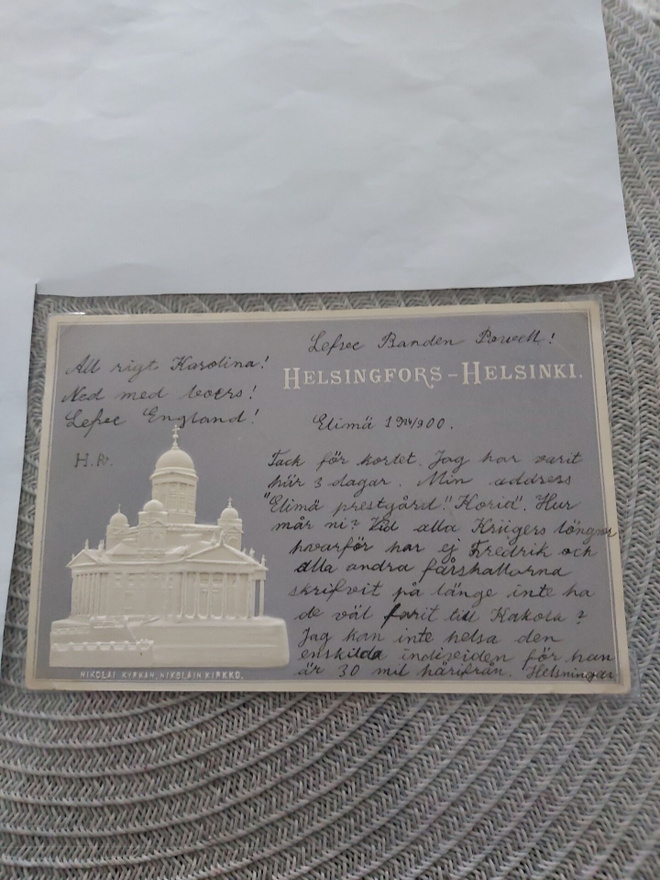 Lefve Banden Powell!
All rigt Karolina!
Ned med boers!
Lefve England!
H.R.
HELSINGFORS-HELSINKI.
Elimä 1900.
Tack för kortet. Jag har varit
här 3 dagar. Min address
"Elimä prestgård" "Koria". Hur
mår ni? Vid alla Krügers löngnar
hvarför har ej Fredrik och
alla andra fårskallarna
skrifvit på länge inte ha
de väl farit till Kakola?
Jag kan inte helsa den
enskilda individen för han
är 30 mil härifrån. Helsningar
NIKOLAI KYRKAN, NIKOLAIN KIRKKO.